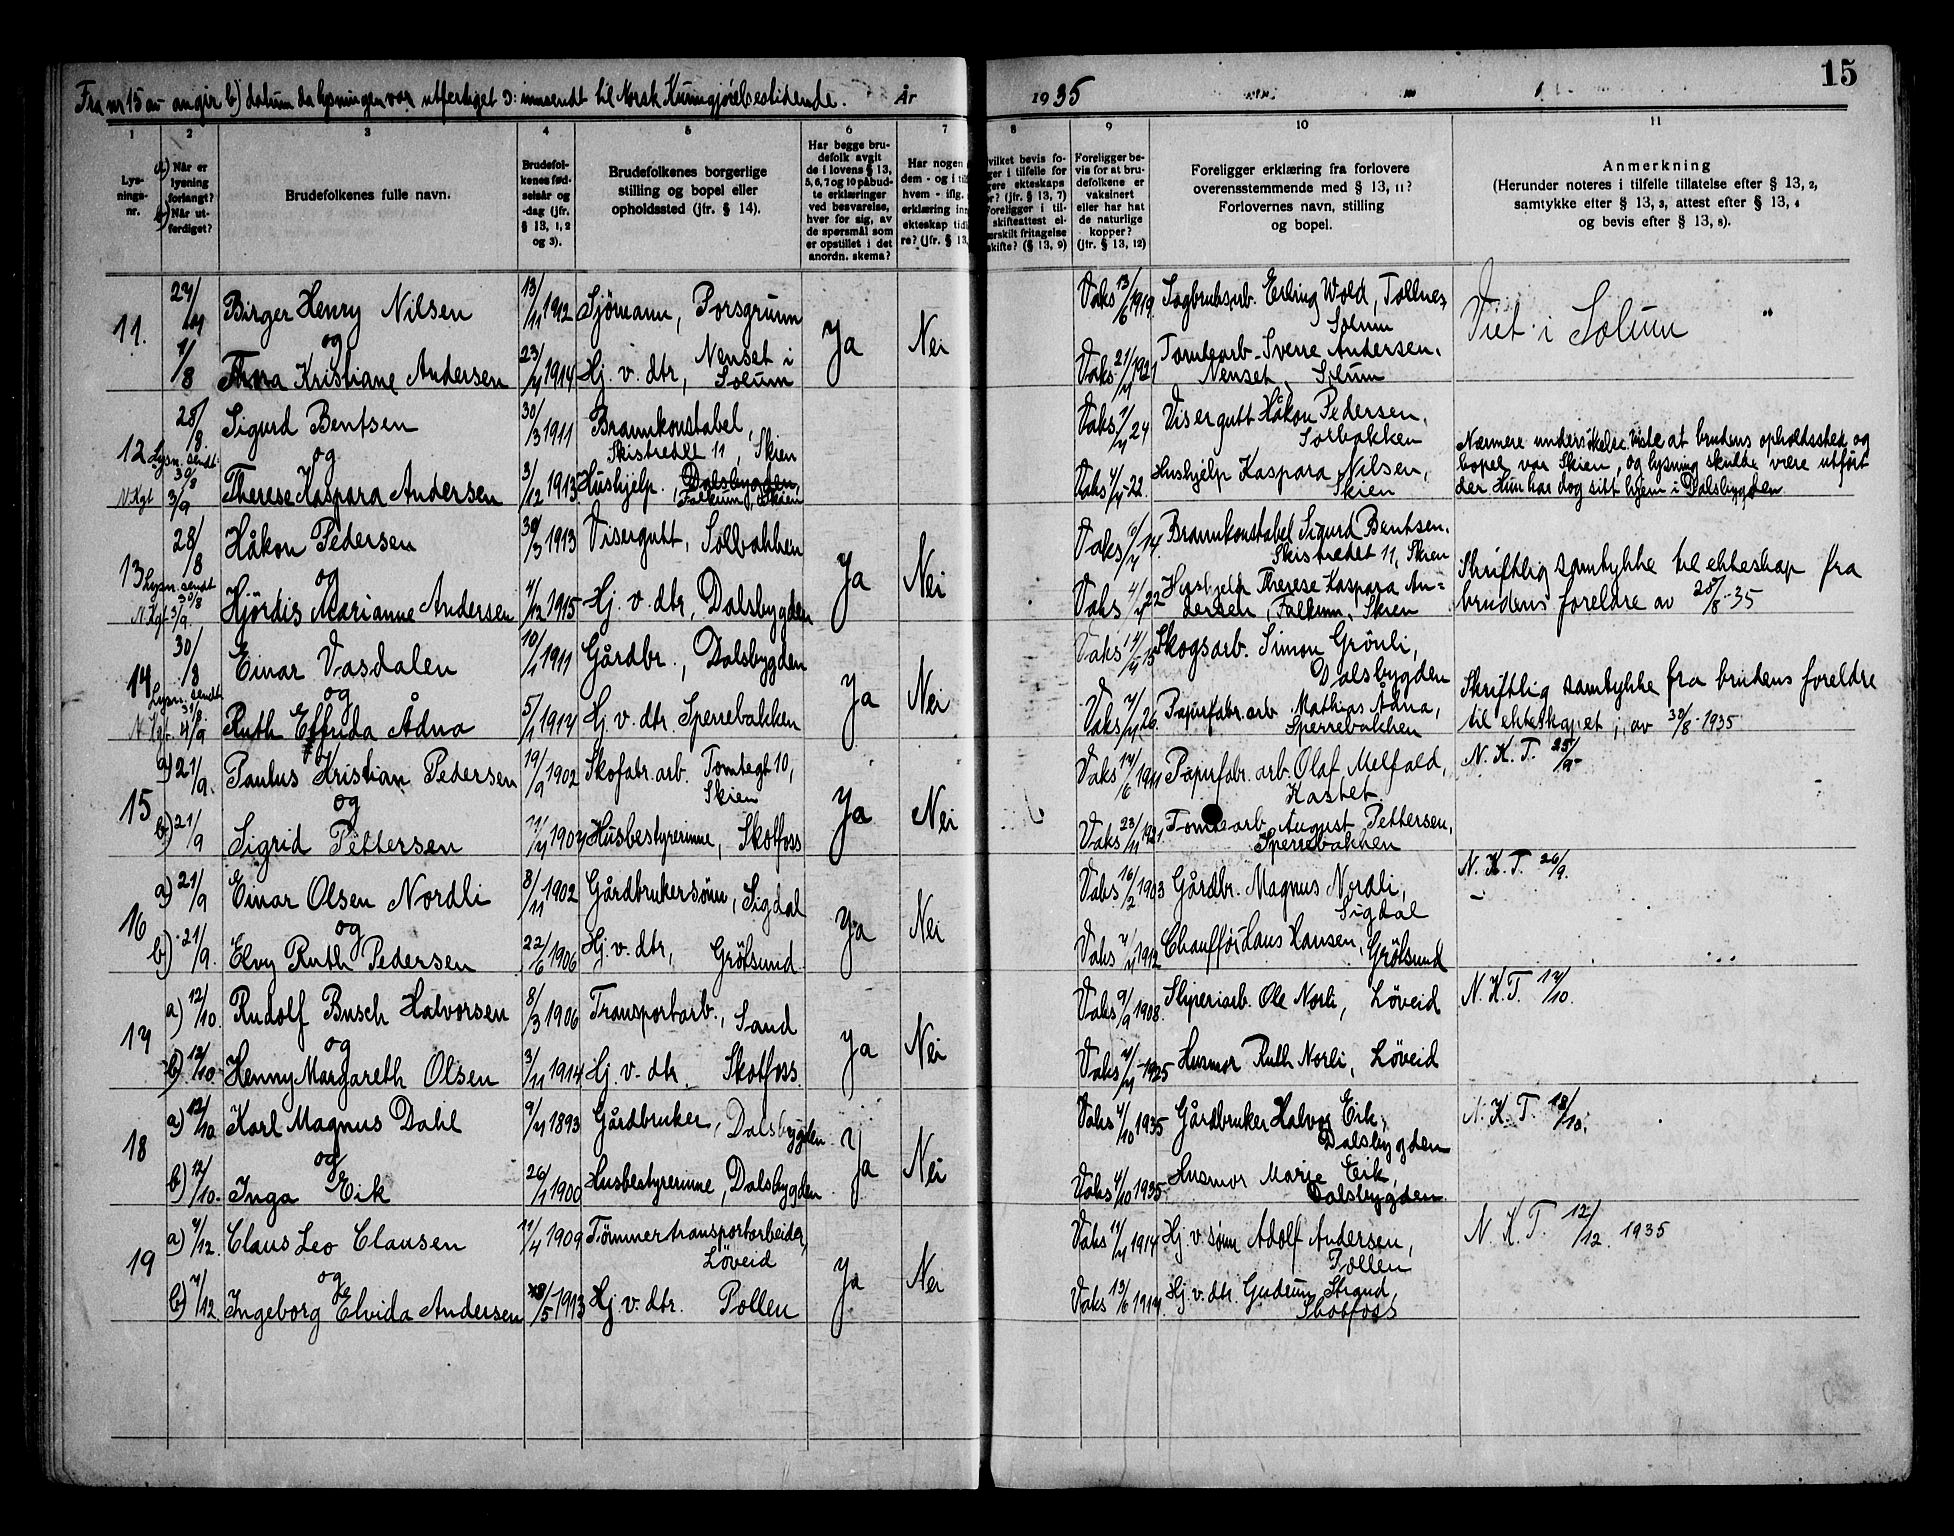 15
Fra nr 15 av angir b) datum da lysningen var utferdiget ɔ: innsendt til Norsk Kunngjørelsestidende.
År 1935
1 2 3 4 5 6 7 8 9 10 11
Lys-
nings-
nr.
a) Når er
lysning
forlangt?
b) Når ut-
ferdiget?
Brudefolkenes fulle navn.
Brudefol-
kenes fød-
selsår og
-dag (jfr.
§ 13, 1, 2
og 3).
Brudefolkenes borgerlige
stilling og bopel eller
opholdssted (jfr. § 14).
Har begge bru-
defolk avgitt
de i lovens § 13,
5, 6, 7 og 10 påbud-
te erklæringer
ved besvarelse,
hver for sig, av
de spørsmål som
er opstillet i det
anordn. skema?
Har nogen
dem - og i
hvem - iflg.
erklæring in
ekteskap tid
re? (jfr. § 13,
vilket bevis fo-
ger i tilfelle for
gere ekteskaps
r? (jfr. § 13, 7)
Foreligger i til-
skifteattest el-
ærskilt fritagelse
skifte? (§ 13, 9)
Foreligger be-
vis for at bru-
defolkene er
vaksinert
eller har hat
de naturlige
kopper?
(jfr. § 13, 12)
Foreligger erklæring fra forlovere
overensstemmende med § 13, 11?
Forlovernes navn, stilling
og bopel.
Anmerkning
(Herunder noteres i tilfelle tillatelse efter § 13, 2,
samtykke efter § 13, 3, attest efter § 13, 4
og bevis efter § 13, 8).
11.
27/7 Birger Henry Nilsen 13/11 1912 Sjömann, Porsgrunn
og
1/8 Thora Kristiane Andersen 23/7 1914 Hj. v. dtr, Nenset i
Solum
Ja Nei
Vaks 13/6 1919 Sagbruksarb. Erling Wold, Tollnes,
Solum
Vaks 21/7 1921 Tomtearb. Sverre Andersen,
Nenset, Solum
Viet i Solum
12
28/8. Sigurd Bentsen 30/3 1911 Brannkonstabel,
Skistredet 11, Skien
og
Lysn. sendt 30/8
N.Kgt 3/9 Therese Kaspara Andersen 3/12 1913 Hushjelp, Dalsbygden,
Falkum, Skien
Vaks 24 Visergutt Håkon Pedersen,
Solbakken
Vaks 22. Hushjelp Kaspara Nilsen,
Skien
Nærmere undersøkelse viste at brudens opholdssted og
bopel var Skien, og lysning skulde være utført
der. Hun har dog sitt hjem i Dalsbygden
13
28/8 Håkon Pedersen 30/3 1913 Visergutt, Solbakken
og
Lysn. sendt 30/8
N.Kgt 3/9. Hjördis Marianne Andersen 4/12 1915 Hj. v. dtr, Dalsbygden
Ja Nei
Vaks 14. Brannkonstabel Sigurd Bentsen,
Skistredet 11, Skien
Vaks 22 Hushjelp Therese Kaspara An-
dersen, Falkum, Skien
Skriftlig samtykke til ekteskap fra
brudens foreldre av 28/8-35
14
30/8 Einar Vasdalen 10/1 1911 Gårdbr., Dalsbygden
og
Lysn. sendt 31/8.
N.Kgt. 4/9 Ruth Elfrida Ådna 5/1 1914 Hj. v. dtr. Sperrebakken
Ja Nei
Vaks 15 Skogsarb. Simon Grönli,
Dalsbygden
Vaks 26. Papirfabr. arb Mathias Ådna,
Sperrebakken
Skriftlig samtykke fra brudens foreldre
til ekteskapet, av 30/8-1935
15
a) 21/9. Paulus Kristian Pedersen 19/9 1902 Skofabr. arb. Tomtegt 10,
Skien
og
b) 21/9 Sigrid Pettersen 1907 Husbestyrerinne, Skotfoss
Ja Nei
Vaks 1911 Papirfabr. arb. Olaf Melfald,
Kastet.
Vaks 23/11 1921. Tomtearb August Pettersen,
Sperrebakken
N. K. T. 25/9
16
a) 21/9 Einar Olsen Nordli 8/11 1902 Gårdbrukersönn, Sigdal
og
b) 21/9. Elvy Ruth Pedersen 22/6 1906 Hj. v. dtr, Grötsund
Ja Nei
Vaks 16/2 1903 Gårdbr. Magnus Nordli,
Sigdal
Vaks 1912 Chaufför Hans Hansen, Grötsund
N. K. T. 26/9.
17
a) 12/10. Rudolf Busch Halvorsen 8/3 1906 Transportarb., Sand
og
b) 12/10. Henny Margareth Olsen 3/11 1914 Hj. v. dtr. Skotfoss.
Ja Nei
Vaks 9/9 1908. Sliperiarb. Ole Norli, Löveid
Vaks 1925 Husmor Ruth Norli, Löveid
N. K. T. 17/10.
18
a) 12/10 Karl Magnus Dahl 9/7 1893 Gårdbruker, Dalsbygden
og
b) 12/10. Inga Eik 26/1 1900 Husbestyrerinne, Dalsbygden
Ja Nei
Vaks 4/10 1935 Gårdbruker Halvor Eik,
Dalsbygden
Vaks 4/10 1935 Husmor Marie Eik,
Dalsbygden
N. K. T. 18/10.
19
a) 7/12. Claus Leo Clausen 11/4 1909 Tömmertransportarbeider,
Löveid
og
b) 7/12. Ingeborg Elvida Andersen 18/5 1913 Hj. v. dtr. Pollen
Ja Nei
Vaks 1914 Hj. v. sönn Adolf Andersen,
Pollen
Vaks 13/6 1917. Hj. v. dtr. Gudrun Strand,
Skotfoss
N. K. T. 12/12. 1935